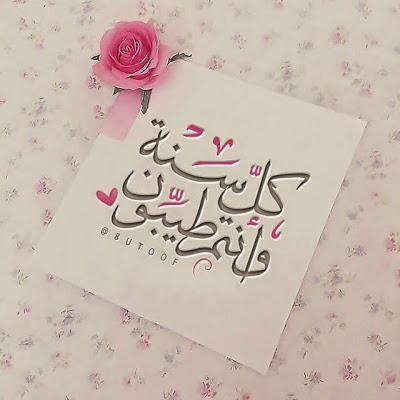 كلّ سنة
وأنتم طيّبون
@BUTOOF